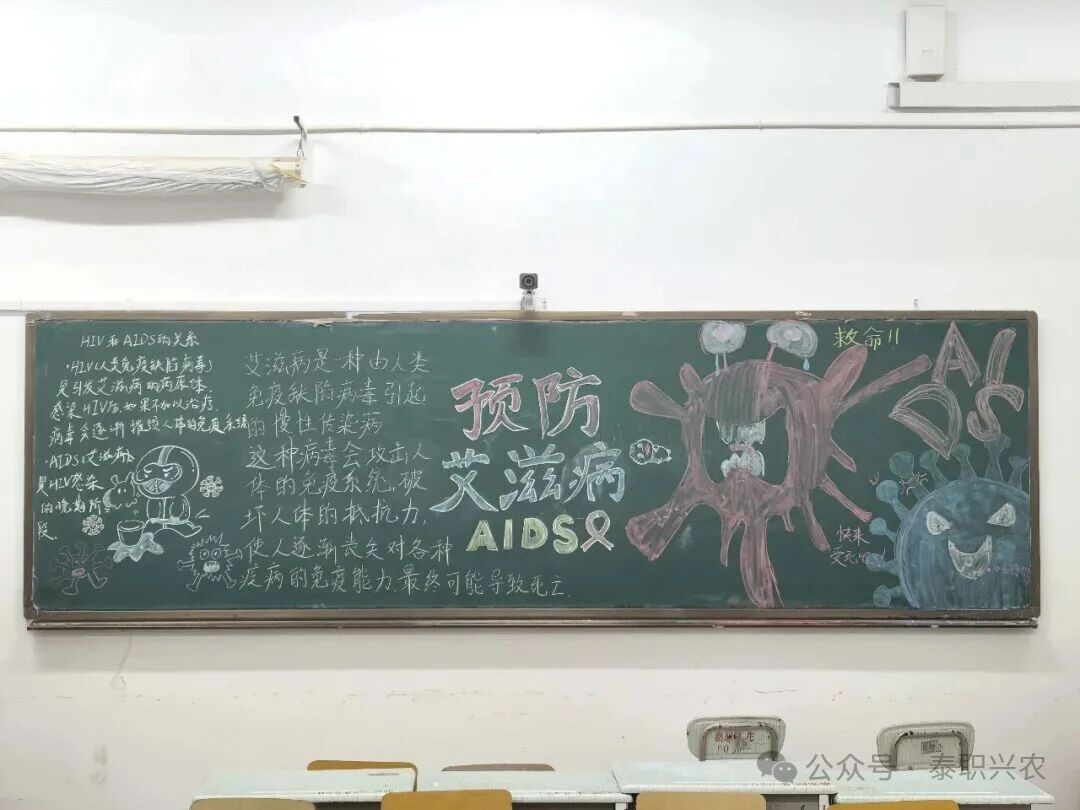 HIV和AIDS的关系
·HIV(人类免疫缺陷病毒)
是引发艾滋病的病原体.
感染HIV后,如果不加以治疗,
病毒会逐渐摧毁人体的免疫系统
·AIDS(艾滋病)
是HIV感染
的晚期阶
段.
艾滋病是一种由人类
免疫缺陷病毒引起
的慢性传染病
这种病毒会攻击人
体的免疫系统,破
坏人体的抵抗力,
使人逐渐丧失对各种
疾病的免疫能力,最终可能导致死亡.
预防
艾滋病
AIDS
救命!!
AIDS
快来
受死吧!
公众号·泰职兴农